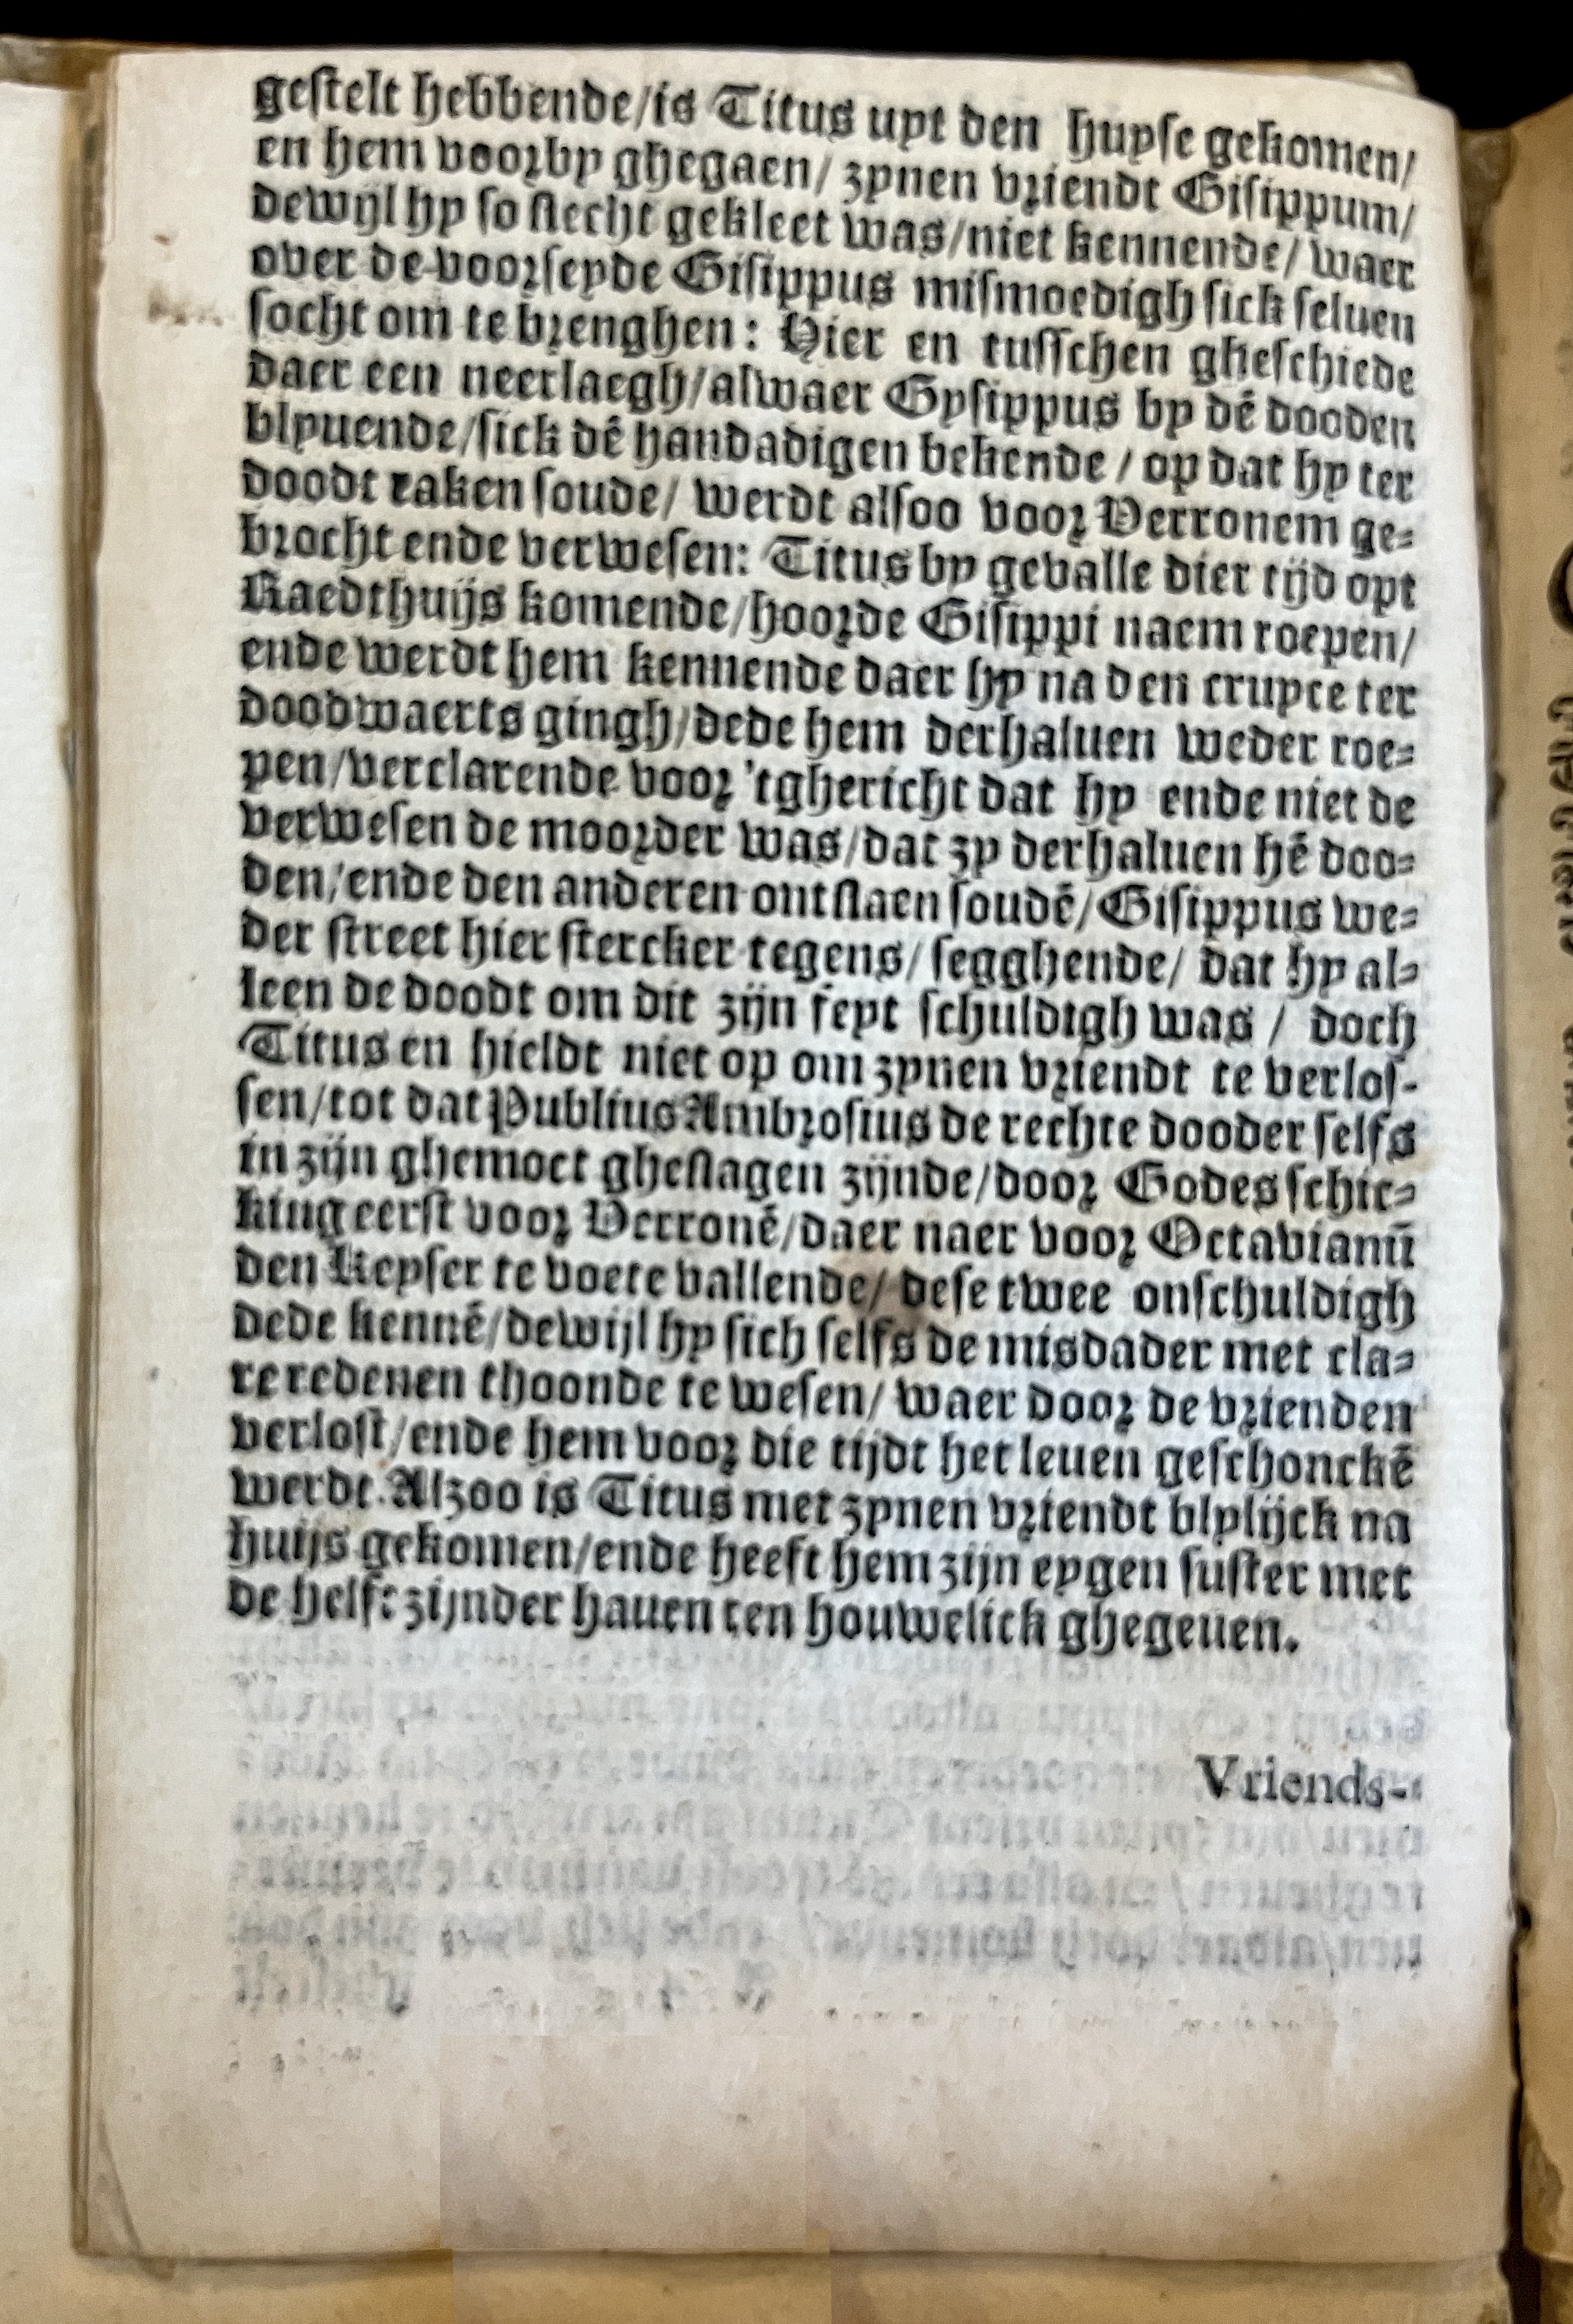 gestelt hebbende/is Titus uyt den huyse gekomen/
en hem voorby ghegaen/ zynen vriendt Gisippum/
dewijl hy so slecht gekleet was/niet kennende/ waer
over de voorseyde Gisippus mismoedigh sick seluen
socht om te brenghen: Hier en tusschen gheschiede
daer een neerlaegh/alwaer Gysippus by dē dooden
blyuende/sick dē handadigen bekende / op dat hy ter
doodt raken soude/ werdt alsoo voor Verronem ge-
brocht ende verwesen: Titus by gevalle dier tijd opt
Raedthuijs komende/hoorde Gisippi naem roepen/
ende werdt hem kennende daer hy na den cruyce ter
doodwaerts gingh/dede hem derhaluen weder roe-
pen/verclarende voor 'tghericht dat hy ende niet de
verwesen de moorder was/dat zy derhaluen hē doo-
den/ende den anderen ontslaen soudē/Gisippus we-
der street hier stercker tegens/ segghende/ dat hy al-
leen de doodt om dit zijn feyt schuldigh was / doch
Titus en hieldt niet op om zynen vriendt te verlos-
sen/tot dat Publius Ambrosius de rechte dooder selfs
in zijn ghemoet gheslagen zijnde/door Godes schic-
king eerst voor Verronē/daer naer voor Octavianū
den Keyser te voete vallende/ dese twee onschuldigh
dede kennē/dewijl hy sich selfs de misdader met cla-
re redenen thoonde te wesen/ waer door de vrienden
verlost/ende hem voor die tijdt het leuen geschonckē
werdt. Alzoo is Titus met zynen vriendt blylijck na
huijs gekomen/ende heeft hem zijn eygen suster met
de helft zijnder hauen ten houwelick ghegeuen.
Vriends-